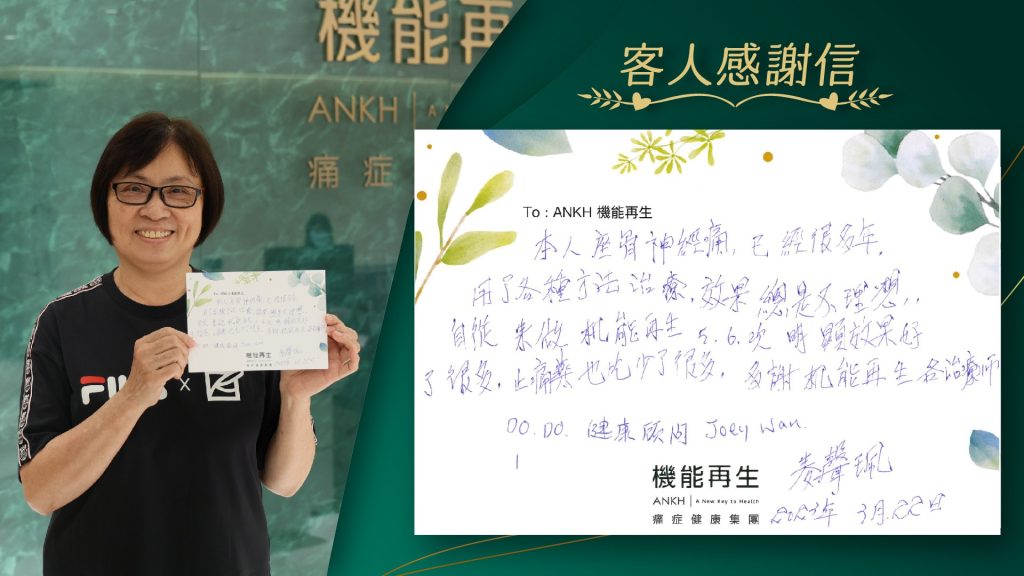 機能再
ANKH | A
痛症
FILA
客人感謝信
To : ANKH 機能再生
本人座骨神經痛，已經很多年，
用了各種方法治療，效果總是不理想，，
自從來做机能再生5.6.次明顯效果好
了很多，止痛藥也吃少了很多，多謝机能再生各治療師
DO.DO. 健康顧問 Joey Wan.
麥聲珮
機能再生
ANKH | A New Key to Health
痛症健康集團
2023年 3月.22日